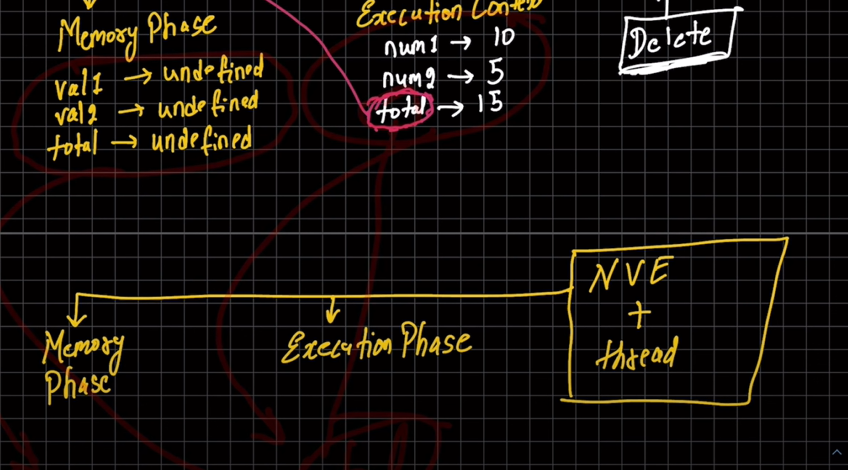 Memory Phase
val1 → undefined
val2 → undefined
total → undefined
Execution Context
num1 → 10
num2 → 5
total → 15
Delete
Memory
Phase
Execution Phase
NVE
+
thread